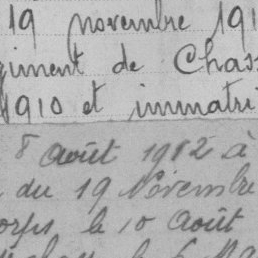 19 novembre 191
giment de Chass
1910 et immatri
8 août 1912 à
du 19 Novembre
orps le 10 Août